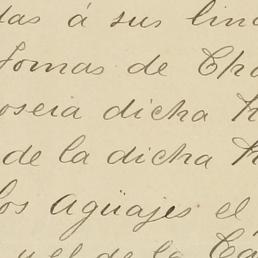 das á sus lin
Tomas de Cha
poseia dicha h
de la dicha h
los Agüajes el
y el de la Ca